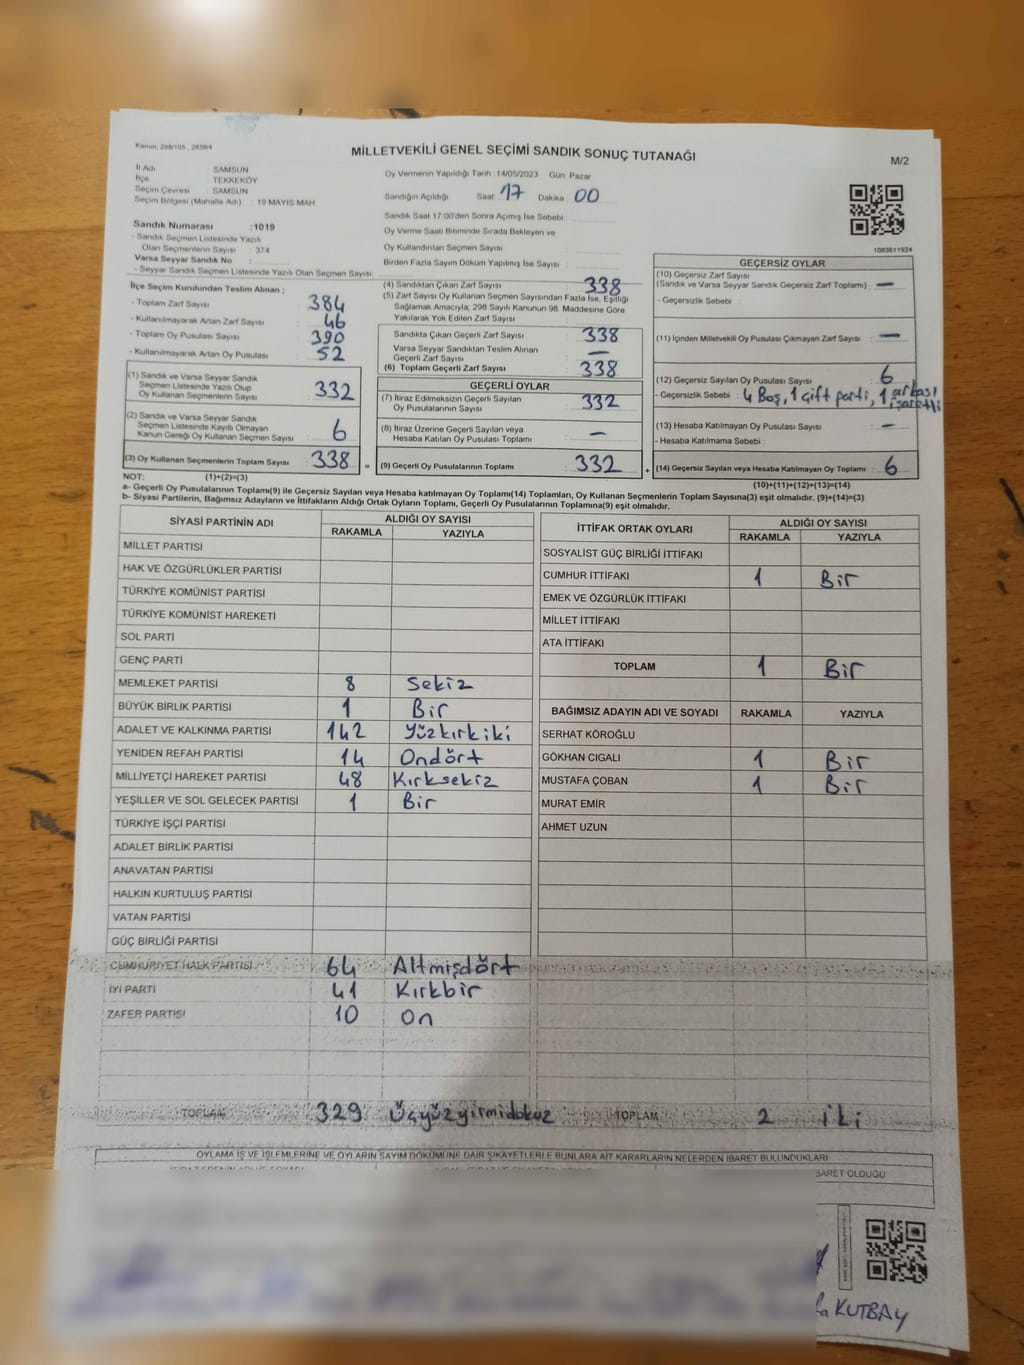 Kanun: 298/105 , 2839/4
MİLLETVEKİLİ GENEL SEÇİMİ SANDIK SONUÇ TUTANAĞI
M/2
İl Adı SAMSUN
İlçe TEKKEKÖY
Seçim Çevresi SAMSUN
Seçim Bölgesi (Mahalle Adı) : 19 MAYIS MAH.
Sandık Numarası :1019
- Sandık Seçmen Listesinde Yazılı
Olan Seçmenlerin Sayısı : 374
Varsa Seyyar Sandık No :
- Seyyar Sandık Seçmen Listesinde Yazılı Olan Seçmen Sayısı:
Oy Vermenin Yapıldığı Tarih :14/05/2023 Gün: Pazar
Sandığın Açıldığı Saat 17 Dakika 00
Sandık Saat 17:00'den Sonra Açımış İse Sebebi :
Oy Verme Saati Bitiminde Sırada Bekleyen ve
Oy Kullandırılan Seçmen Sayısı :
Birden Fazla Sayım Döküm Yapılmış İse Sayısı :
1083811924
İlçe Seçim Kurulundan Teslim Alınan ;
- Toplam Zarf Sayısı : 384
- Kullanılmayarak Artan Zarf Sayısı : 46
- Toplam Oy Pusulası Sayısı : 390
- Kullanılmayarak Artan Oy Pusulası : 52
(1) Sandık ve Varsa Seyyar Sandık
Seçmen Listesinde Yazılı Olup
Oy Kullanan Seçmenlerin Sayısı : 332
(2) Sandık ve Varsa Seyyar Sandık
Seçmen Listesinde Kayıtlı Olmayan
Kanun Gereği Oy Kullanan Seçmen Sayısı : 6
(3) Oy Kullanan Seçmenlerin Toplam Sayısı : 338 =
(4) Sandıktan Çıkan Zarf Sayısı : 338
(5) Zarf Sayısı Oy Kullanan Seçmen Sayısından Fazla İse, Eşitliği
Sağlamak Amacıyla, 298 Sayılı Kanunun 98. Maddesine Göre
Yakılarak Yok Edilen Zarf Sayısı :
Sandıkta Çıkan Geçerli Zarf Sayısı : 338
Varsa Seyyar Sandıktan Teslim Alınan
Geçerli Zarf Sayısı : —
(6) Toplam Geçerli Zarf Sayısı : 338
GEÇERLİ OYLAR
(7) İtiraz Edilmeksizin Geçerli Sayılan
Oy Pusulalarının Sayısı : 332
(8) İtiraz Üzerine Geçerli Sayılan veya
Hesaba Katılan Oy Pusulası Toplamı : —
(9) Geçerli Oy Pusulalarının Toplamı : 332 +
GEÇERSİZ OYLAR
(10) Geçersiz Zarf Sayısı
(Sandık ve Varsa Seyyar Sandık Geçersiz Zarf Toplamı) : —
- Geçersizlik Sebebi :
(11) İçinden Milletvekili Oy Pusulası Çıkmayan Zarf Sayısı : —
(12) Geçersiz Sayılan Oy Pusulası Sayısı : 6
- Geçersizlik Sebebi : 4 Boş, 1 çift parti, 1 arkası işaretli
(13) Hesaba Katılmayan Oy Pusulası Sayısı : —
- Hesaba Katılmama Sebebi :
(14) Geçersiz Sayılan veya Hesaba Katılmayan Oy Toplamı : 6
NOT: (1)+(2)=(3) (10)+(11)+(12)+(13)=(14)
a- Geçerli Oy Pusulalarının Toplamı(9) ile Geçersiz Sayılan veya Hesaba katılmayan Oy Toplamı(14) Toplamları, Oy Kullanan Seçmenlerin Toplam Sayısına(3) eşit olmalıdır. (9)+(14)=(3)
b- Siyasi Partilerin, Bağımsız Adayların ve İttifakların Aldığı Ortak Oyların Toplamı, Geçerli Oy Pusulalarının Toplamına(9) eşit olmalıdır.
SİYASİ PARTİNİN ADI ALDIĞI OY SAYISI
RAKAMLA YAZIYLA
MİLLET PARTİSİ
HAK VE ÖZGÜRLÜKLER PARTİSİ
TÜRKİYE KOMÜNİST PARTİSİ
TÜRKİYE KOMÜNİST HAREKETİ
SOL PARTİ
GENÇ PARTİ
MEMLEKET PARTİSİ 8 Sekiz
BÜYÜK BİRLİK PARTİSİ 1 Bir
ADALET VE KALKINMA PARTİSİ 142 Yüzkırkiki
YENİDEN REFAH PARTİSİ 14 Ondört
MİLLİYETÇİ HAREKET PARTİSİ 48 Kırksekiz
YEŞİLLER VE SOL GELECEK PARTİSİ 1 Bir
TÜRKİYE İŞÇİ PARTİSİ
ADALET BİRLİK PARTİSİ
ANAVATAN PARTİSİ
HALKIN KURTULUŞ PARTİSİ
VATAN PARTİSİ
GÜÇ BİRLİĞİ PARTİSİ
CUMHURİYET HALK PARTİSİ 64 Altmışdört
İYİ PARTİ 41 Kırkbir
ZAFER PARTİSİ 10 On
TOPLAM 329 Üçyüzyirmidokuz
İTTİFAK ORTAK OYLARI ALDIĞI OY SAYISI
RAKAMLA YAZIYLA
SOSYALİST GÜÇ BİRLİĞİ İTTİFAKI
CUMHUR İTTİFAKI 1 Bir
EMEK VE ÖZGÜRLÜK İTTİFAKI
MİLLET İTTİFAKI
ATA İTTİFAKI
TOPLAM 1 Bir
BAĞIMSIZ ADAYIN ADI VE SOYADI RAKAMLA YAZIYLA
SERHAT KÖROĞLU
GÖKHAN CIGALI 1 Bir
MUSTAFA ÇOBAN 1 Bir
MURAT EMİR
AHMET UZUN
TOPLAM 2 iki
OYLAMA İŞ VE İŞLEMLERİNE VE OYLARIN SAYIM DÖKÜMÜNE DAİR ŞİKAYETLERLE BUNLARA AİT KARARLARIN NELERDEN İBARET BULUNDUKLARI
OLDUĞU
KUTBAY